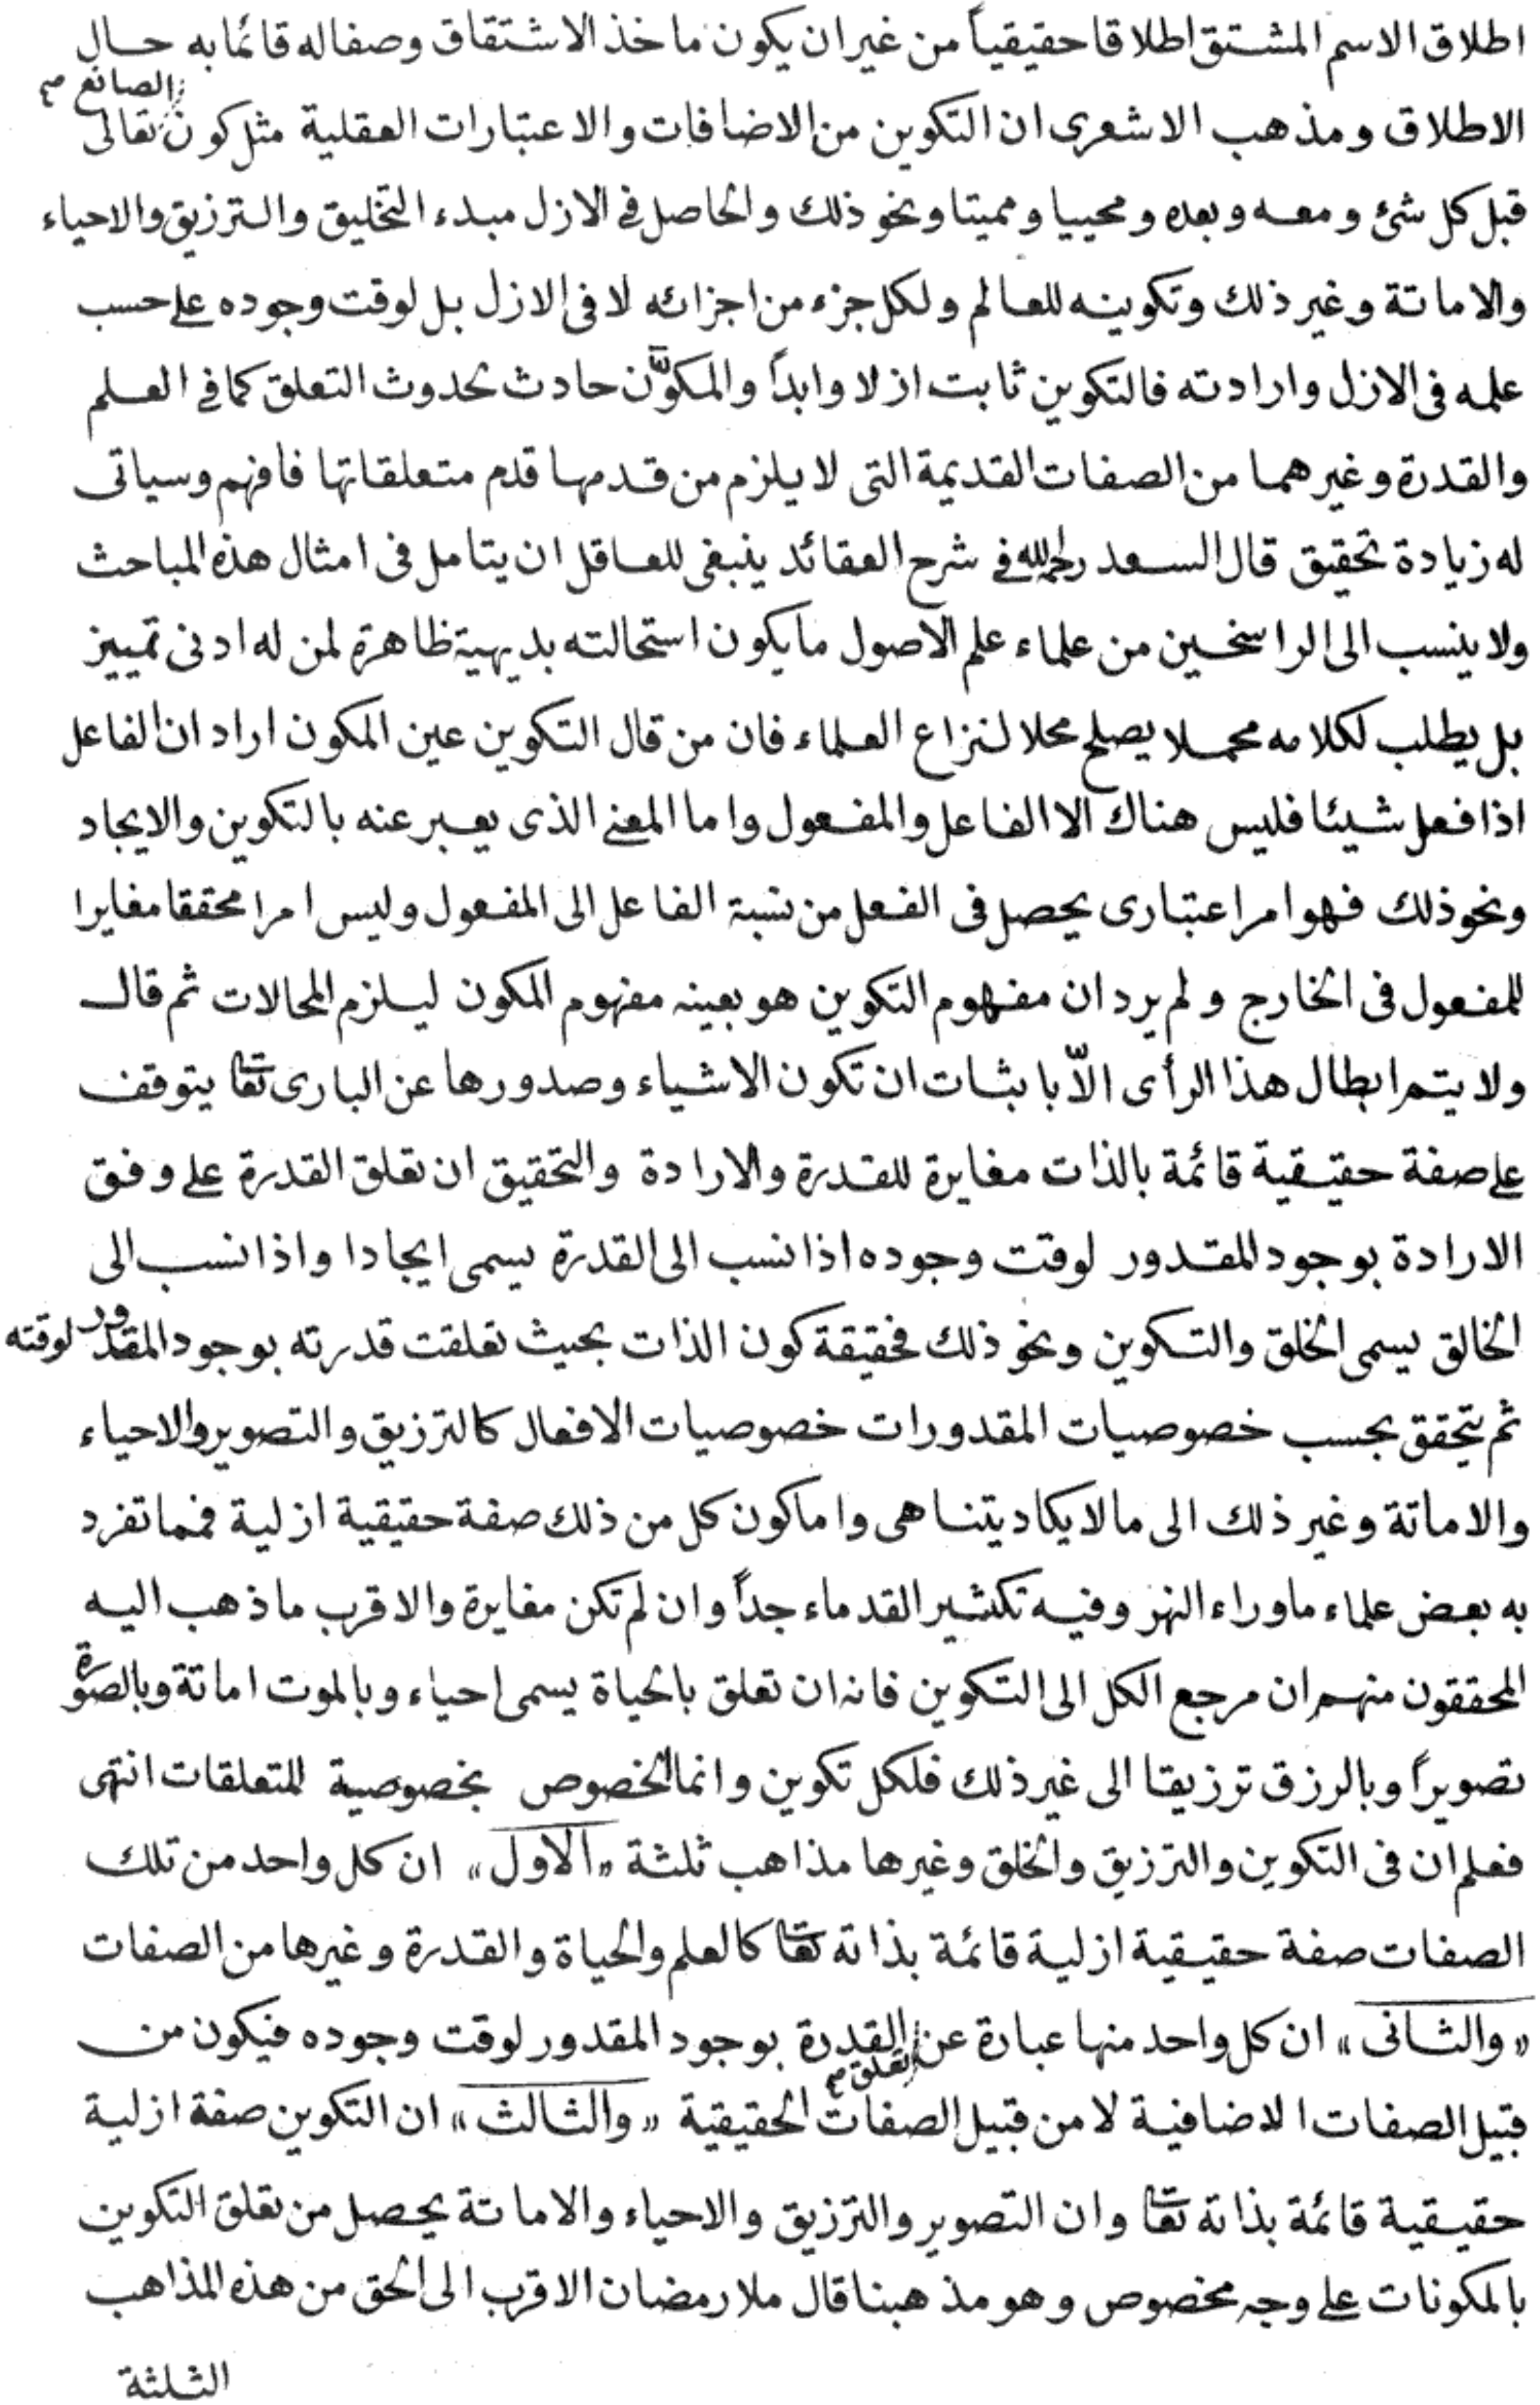 اطلاق الاسم المشتق اطلاقا حقيقياً من غير ان يكون ماخذ الاشتقاق وصفا له قائما به حال
الاطلاق ومذهب الاشعرى ان التكوين من الاضافات والاعتبارات العقلية مثل كون الصانع تعالى
قبل كل شئ ومعه وبعده ومحييا ومميتا ونحو ذلك والحاصل فى الازل مبدء التخليق والترزيق والاحياء
والاماتة وغير ذلك وتكوينه للعالم ولكل جزء من اجزائه لا فى الازل بل لوقت وجوده على حسب
علمه فى الازل وارادته فالتكوين ثابت ازلا وابداً والمكوَّن حادث بحدوث التعلق كما فى العلم
والقدرة وغيرهما من الصفات القديمة التى لا يلزم من قدمها قدم متعلقاتها فافهم وسياتى
له زيادة تحقيق قال السعد رحمه الله فى شرح العقائد ينبغى للعاقل ان يتامل فى امثال هذه المباحث
ولا ينسب الى الراسخين من علماء علم الاصول ما يكون استحالته بديهية ظاهرة لمن له ادنى تمييز
بل يطلب لكلامه محملا يصلح محلا لنزاع العلماء فان من قال التكوين عين المكون اراد ان الفاعل
اذا فعل شيئا فليس هناك الا الفاعل والمفعول واما المعنى الذى يعبر عنه بالتكوين والايجاد
ونحو ذلك فهو امر اعتبارى يحصل فى الفعل من نسبة الفاعل الى المفعول وليس امرا محققا مغايرا
للمفعول فى الخارج ولم يرد ان مفهوم التكوين هو بعينه مفهوم المكون ليلزم المحالات ثم قال
ولا يتم ابطال هذا الرأى الّا باثبات ان تكون الاشياء وصدورها عن البارى تعا يتوقف
على صفة حقيقية قائمة بالذات مغايرة للقدرة والارادة والتحقيق ان تعلق القدرة على وفق
الارادة بوجود المقدور لوقت وجوده اذا نسب الى القدرة يسمى ايجادا واذا نسب الى
الخالق يسمى الخلق والتكوين ونحو ذلك فحقيقة كون الذات بحيث تعلقت قدرته بوجود المقدور لوقته
ثم يتحقق بحسب خصوصيات المقدورات خصوصيات الافعال كالترزيق والتصوير والاحياء
والاماتة وغير ذلك الى ما لا يكاد يتناهى واما كون كل من ذلك صفة حقيقية ازلية فمما تفرد
به بعض علماء ماوراء النهر وفيه تكثير القدماء جداً وان لم تكن مغايرة والاقرب ما ذهب اليه
المحققون منهم ان مرجع الكل الى التكوين فانه ان تعلق بالحياة يسمى احياء وبالموت اماتة وبالصورة
تصويراً وبالرزق ترزيقا الى غير ذلك فلكل تكوين وانما الخصوص بخصوصية للمتعلقات انتهى
فعلم ان فى التكوين والترزيق والخلق وغيرها مذاهب ثلثة «الاول» ان كل واحد من تلك
الصفات صفة حقيقية ازلية قائمة بذاته تعا كالعلم والحياة والقدرة وغيرها من الصفات
«والثانى» ان كل واحد منها عبارة عن تعلق القدرة بوجود المقدور لوقت وجوده فيكون من
قبيل الصفات الاضافية لا من قبيل الصفات الحقيقية «والثالث» ان التكوين صفة ازلية
حقيقية قائمة بذاته تعا وان التصوير والترزيق والاحياء والاماتة يحصل من تعلق التكوين
بالمكونات على وجه مخصوص وهو مذهبنا قال ملا رمضان الاقرب الى الحق من هذه المذاهب
الثلثة